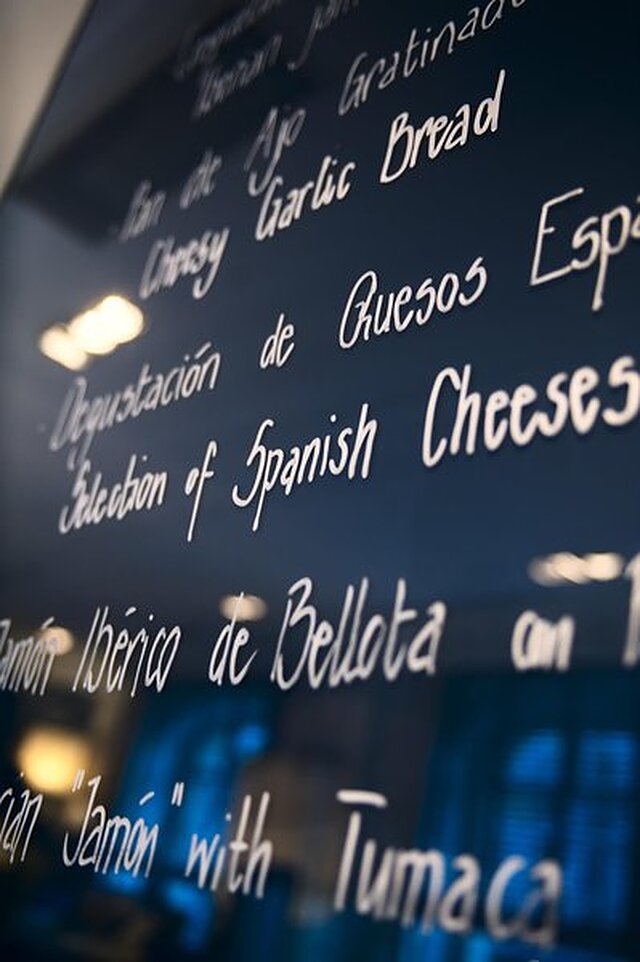 Iberian
Pan de Ajo Gratinado
Cheesy Garlic Bread
Degustación de Quesos Espa
Selection of Spanish Cheeses
Jamón Ibérico de Bellota con T
"Jamón" with Tumaca